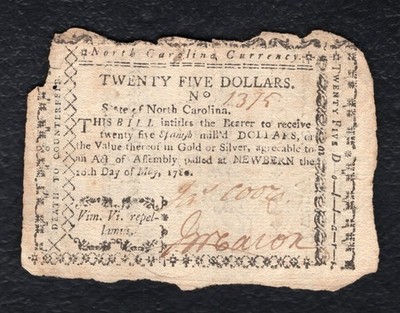 North Carolina Currency.
TWENTY FIVE DOLLARS.
No 1315
State of North Carolina.
THIS BILL intitles the Bearer to receive
twenty five Spanish mill'd DOLLARS, or
the Value thereof in Gold or Silver, agreeable to
an Act of Assembly passed at NEWBERN the
10th Day of May, 1780.
Vim. Vi. repel-
limus.
DEATH TO COUNTERFEIT
TWENTY FIVE Dollars